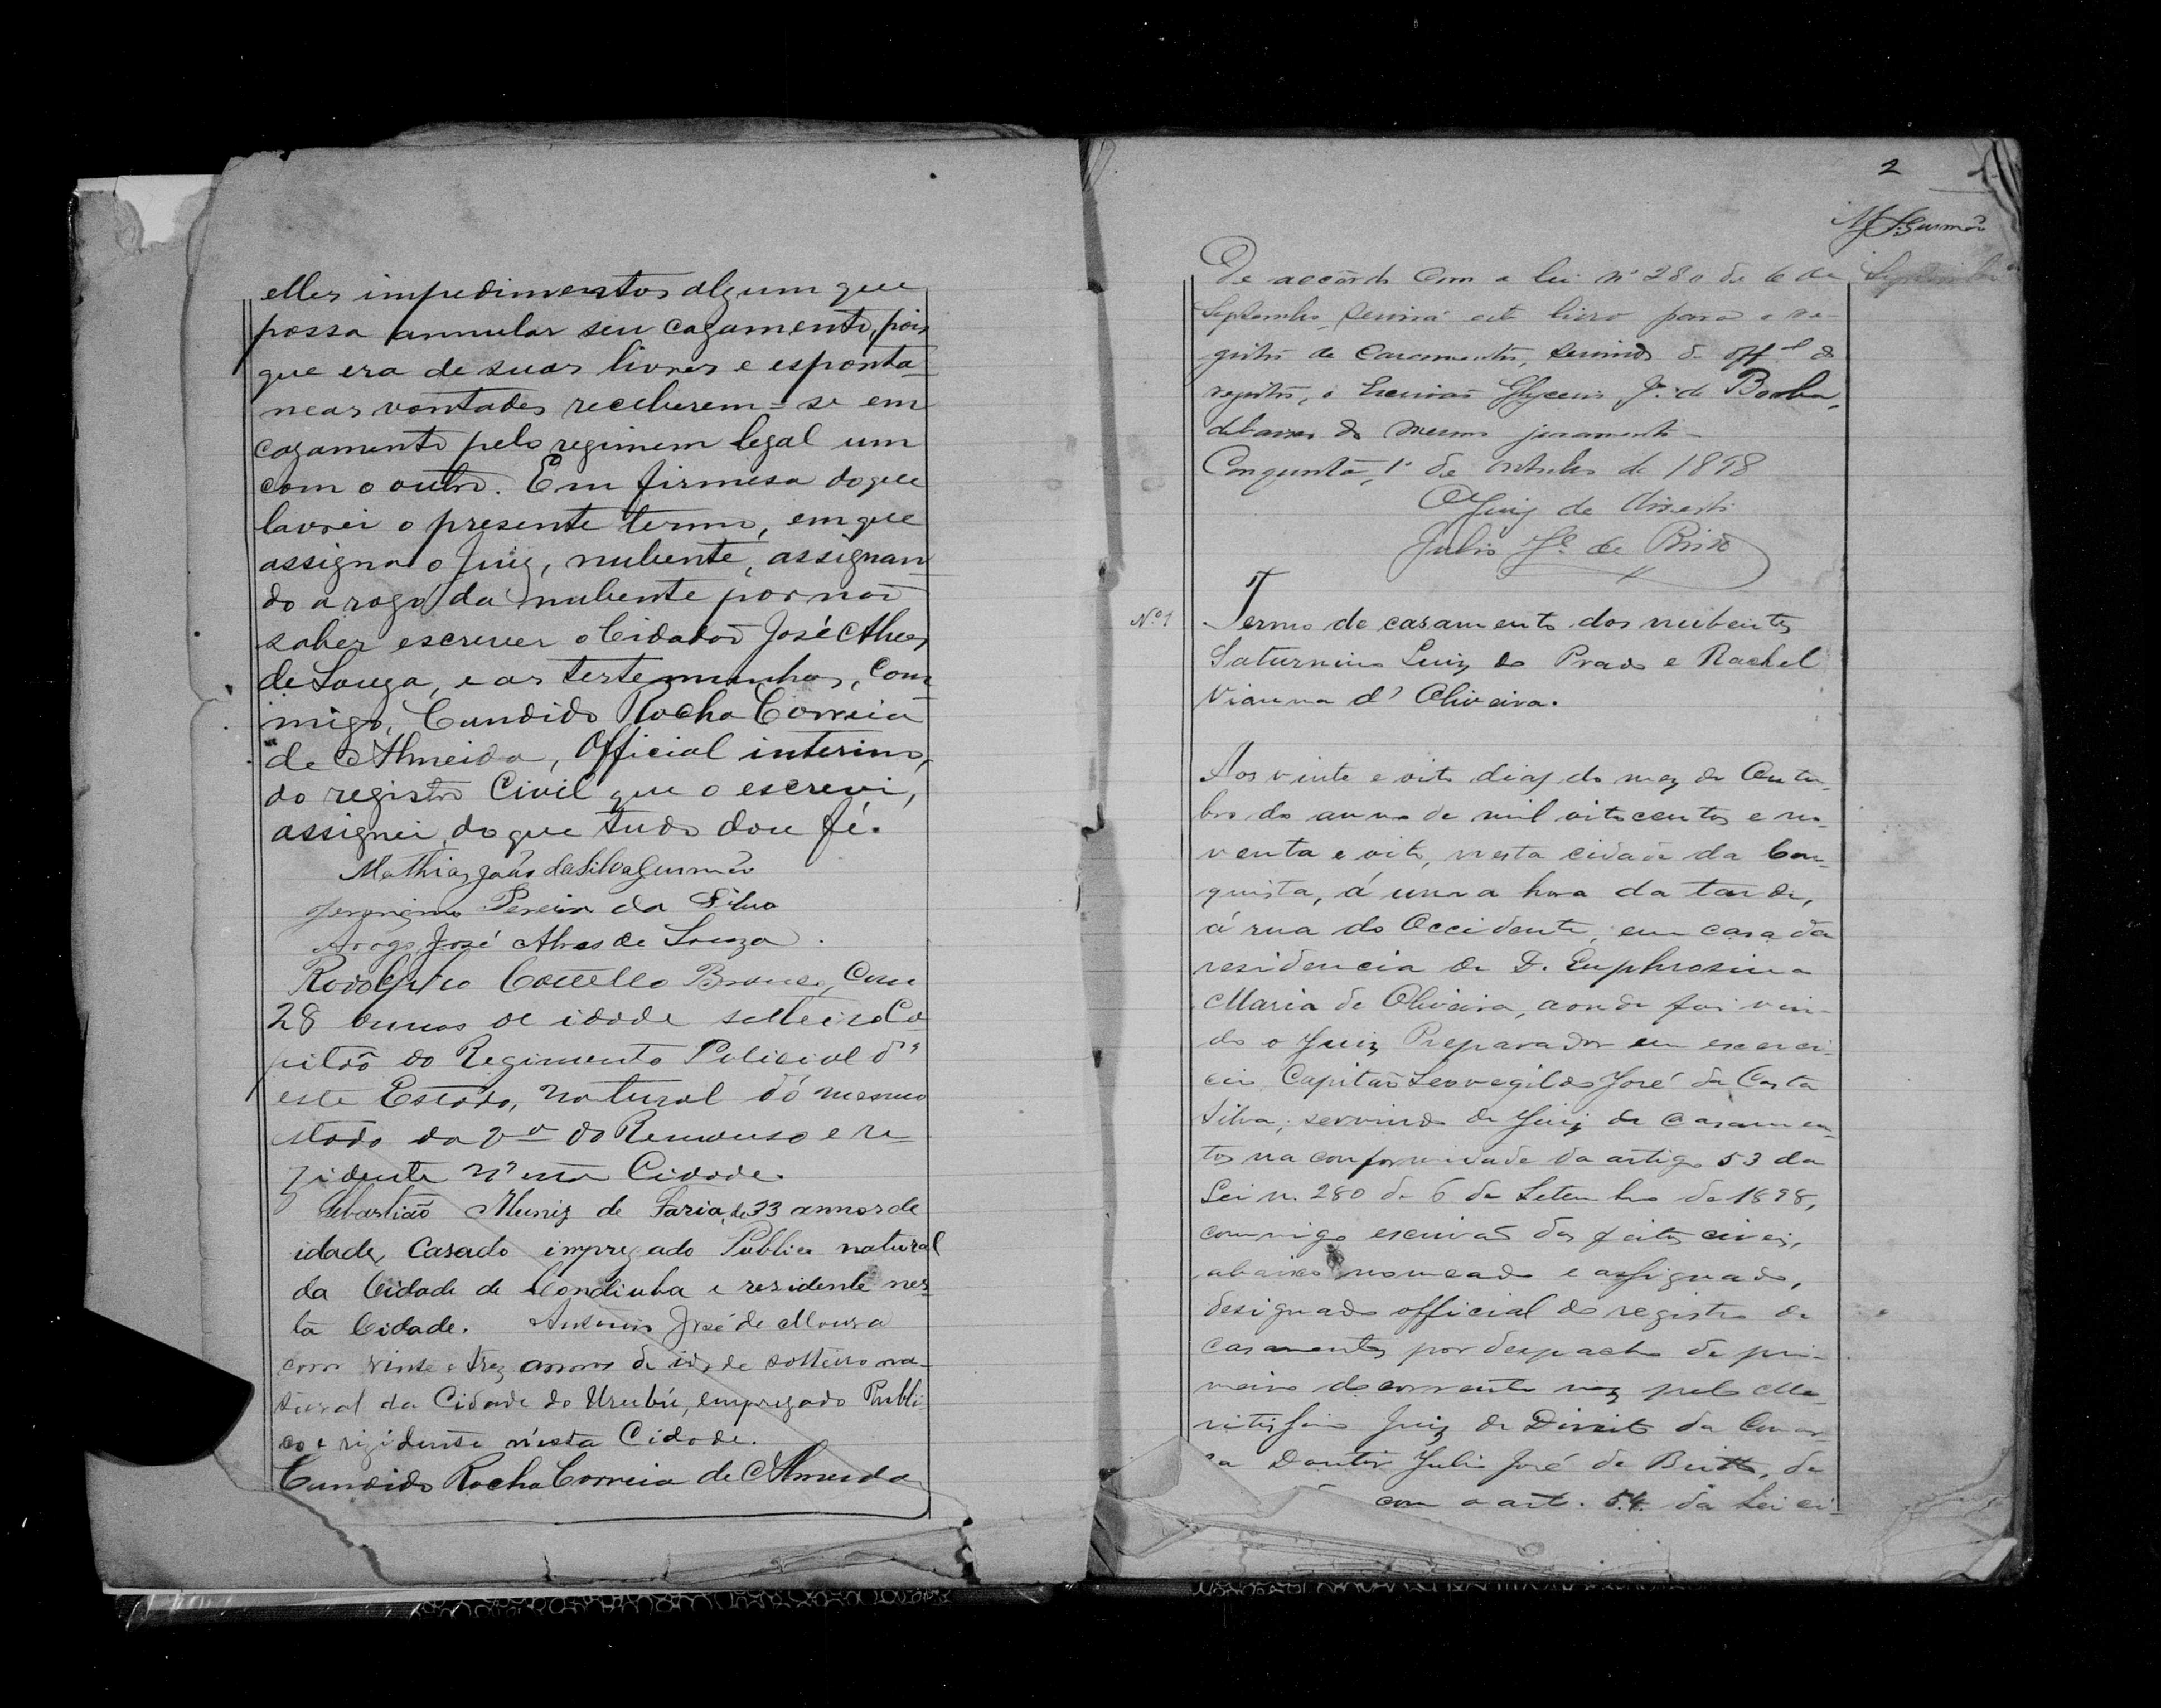 elles impedimentos algum que
possa annular seu cazamento, pois
que era de suas livres e esponta-
neas vontades receberem-se em
cazamento pelo regimem legal um
com o outro. Em firmesa do que
lavrei o presente termo, em que
assigna o Juiz, nubente, assignan-
do a rogo da nubente por não
saber escrever o Cidadão José Alves
de Souza, e as testemunhas, com-
migo, Candido Rocha Correia
de Almeida, Official interino,
do registro Civil que o escrevi,
assignei, do que tudo dou fé.
Mathias João da Silva Gusmão
Jeronymo Pereira da Silva
Arogo José Alves de Souza.
Rodolpho Cocello com
28 annos de idade solteiro Ca
pitão do Regimento Policial d'
este Estado, natural dó mesmo
stado da do Remanso e re
zidente n'esta Cidade.
Sebastião Muniz de Faria, de 33 annos de
idade, Casado impregado Publico natural
da Cidade de Condiuba e residente nes-
ta Cidade. Antonio José de Moura
com vinte e trez annos de idade solteiro na-
tural da Cidade do Urubú, empregado Publi-
co e rizidente n'esta Cidade.
Candido Rocha Correia de Almeida
2
M J S. Gusmão
De accordo com a lei nº 280 de 6 de Septembro
Septembro, servirá este livro para o re-
gistro de Casamentos, servindo de offal do
registro, o Escrivão Glycerio Jº de
debaixo do mesmo juramento-
Conquista, 1º de outubro de 1898
O Juiz de Direito
Julio Jé de Britto
N.º 1 Termo de casamento dos nubentes
Saturnino Luiz do Prado e Rachel
Vianna d' Oliveira.
Aos vinte e oito dias do mez de Outu-
bro do anno de mil oitocentos e no-
venta e oito, nesta cidade da Con-
quista, á uma hora da tarde,
á rua do Occidente, em casa da
residencia de D. Euphrosina
Maria de Oliveira, aonde foi vin-
do o Juiz Preparador em exerci-
cio Capitão Leovegildo José da Costa
Silva, servindo de Juiz de Casamen-
tos na conformidade da artigo 53 da
Lei n. 280 de 6 de Setembro de 1898,
commigo escrivão dos feitos civeis,
abaixo nomeado e assignado,
designado official do registro de
casamentos por despacho de pri-
meiro do corrente mez pelo Me-
ritissimo Juiz de Direito da Comar-
ca Doutor Julio José de Britto, de
com o art. 54 da Lei ci-